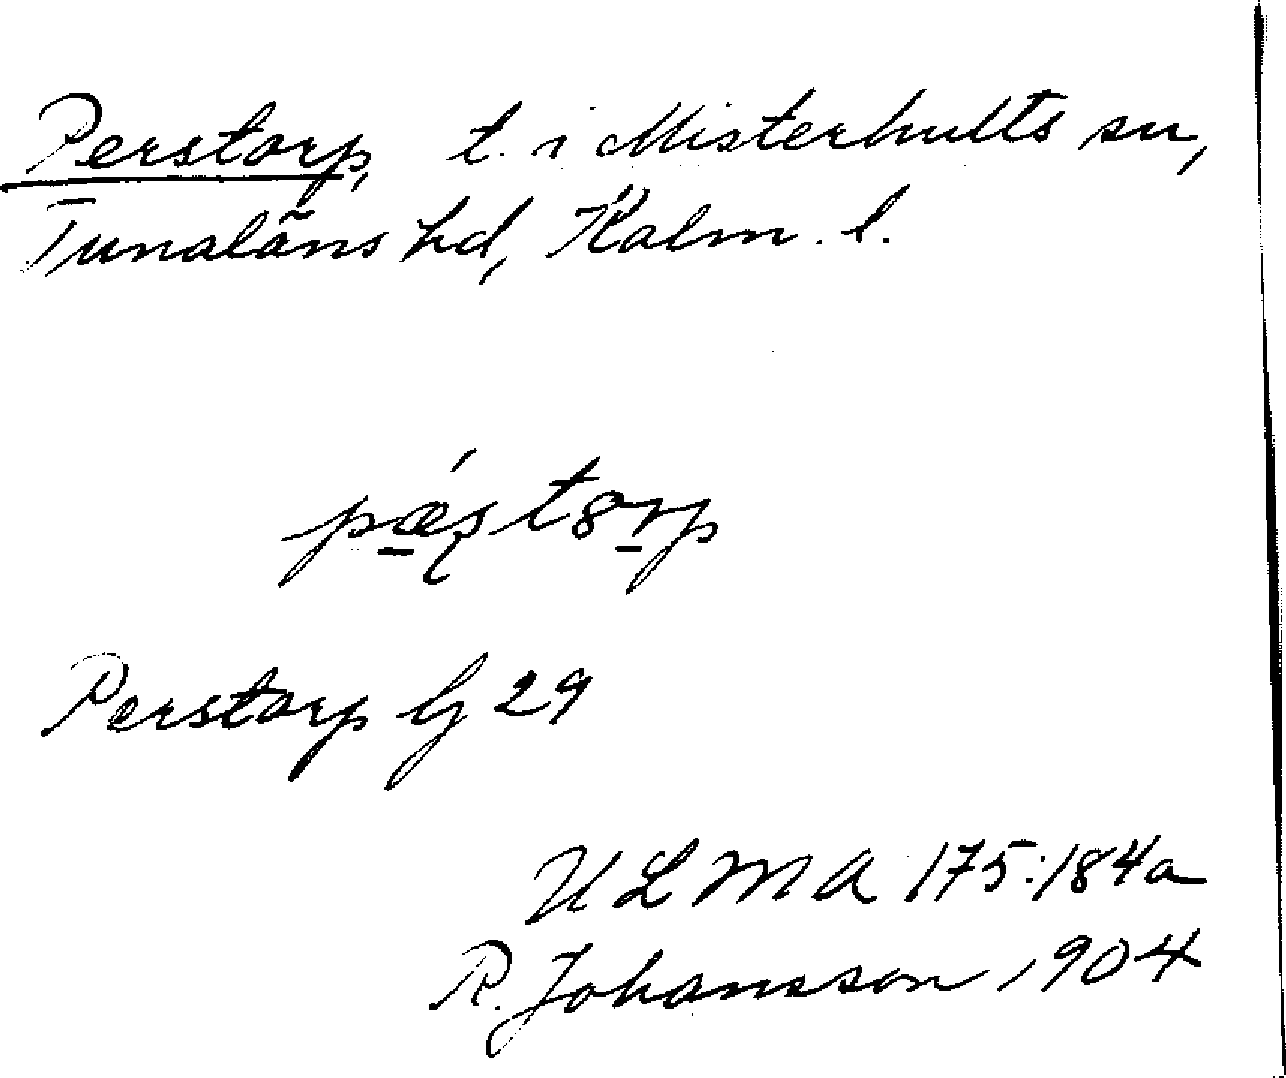 Perstorp, t. i Misterhults sn,
Tunaläns hd, Kalm. l.
Perstorp Gj 29
ULMA 175:184a
R. Johansson 1904